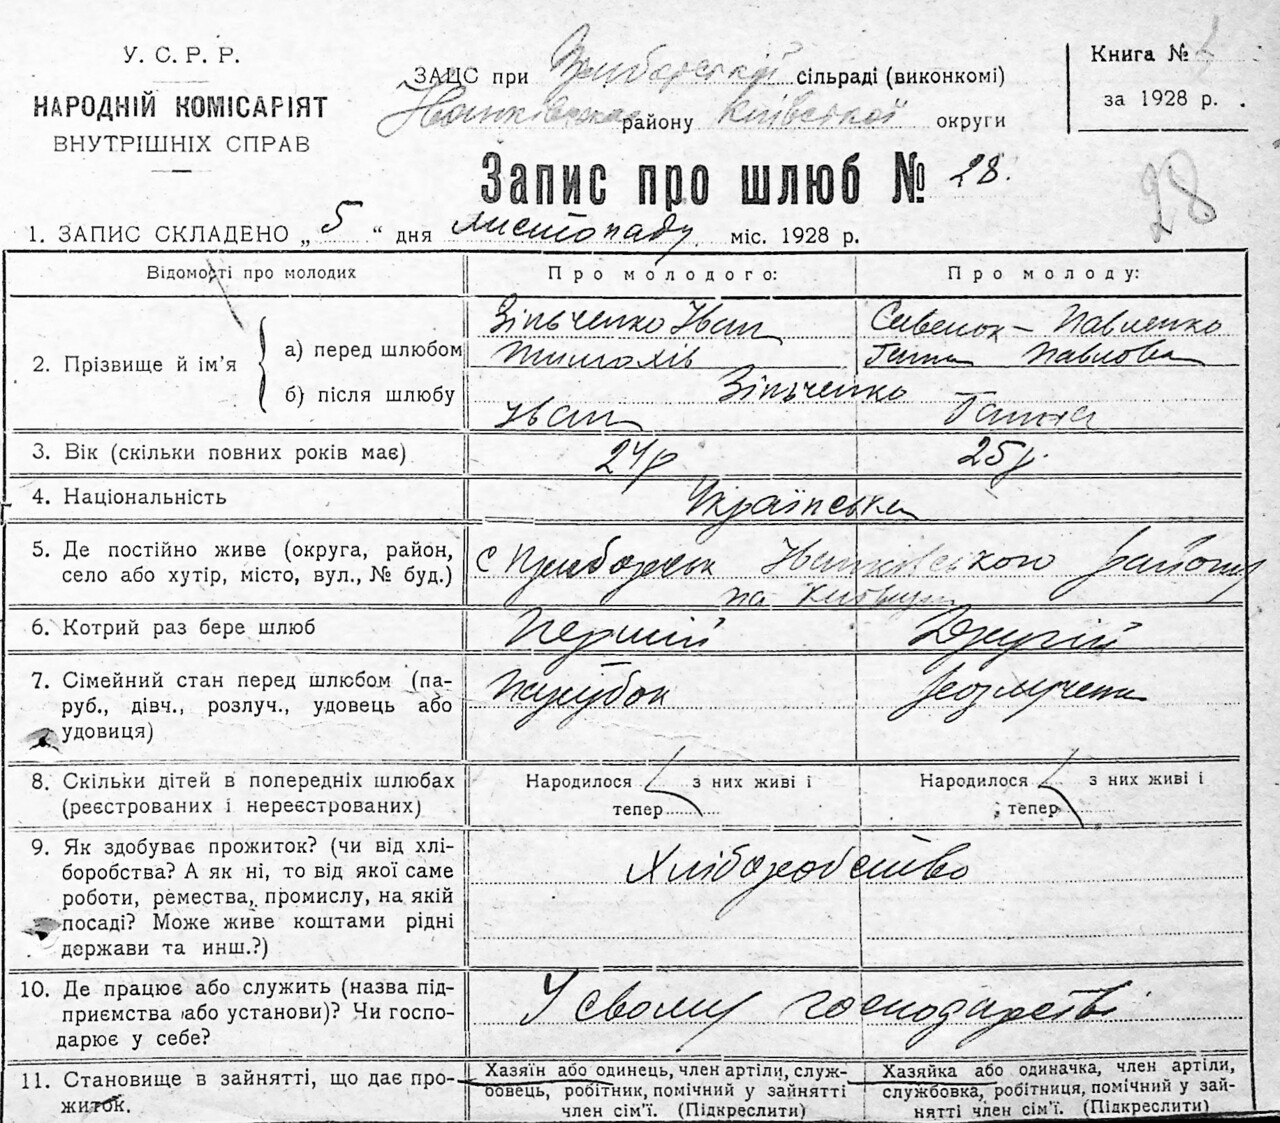 У. С. Р. Р.
НАРОДНІЙ КОМІСАРІЯТ
ВНУТРІШНІХ СПРАВ
ЗАЦС при Прибарській сільраді (виконкомі)
Іванківського району Київської округи
Книга №
за 1928 р.
Запис про шлюб № 28.
28
1. ЗАПИС СКЛАДЕНО „ 5 “ дня листопаду міс. 1928 р.
Відомості про молодих
Про молодого:
Про молоду:
2. Прізвище й ім’я
а) перед шлюбом
б) після шлюбу
Зінченко Іван
Тимохів
Савенок – Павленко
Ганна Павлова
Зінченко
Іван
Ганна
3. Вік (скільки повних років має)
24р
25р.
4. Національність
Українська
5. Де постійно живе (округа, район,
село або хутір, місто, вул., № буд.)
с Прибарськ Іванківського району
на Київщ
6. Котрий раз бере шлюб
Перший
Другій
7. Сімейний стан перед шлюбом (па-
руб., дівч., розлуч., удовець або
удовиця)
Парубок
розлучена
8. Скільки дітей в попередніх шлюбах
(реєстрованих і нереєстрованих)
Народилося з них живі і
тепер
Народилося з них живі і
тепер
9. Як здобуває прожиток? (чи від хлі-
боробства? А як ні, то від якої саме
роботи, ремества, промислу, на якій
посаді? Може живе коштами рідні
держави та инш.?)
Хліборобство
10. Де працює або служить (назва під-
приємства або установи)? Чи госпо-
дарює у себе?
У свому господарстві
11. Становище в зайнятті, що дає про-
житок.
Хазяїн або одинець, член артіли, служ-
бовець, робітник, помічний у зайнятті
член сім’ї. (Підкреслити)
Хазяйка або одиначка, член артіли,
службовка, робітниця, помічний у зай-
нятті член сім’ї. (Підкреслити)